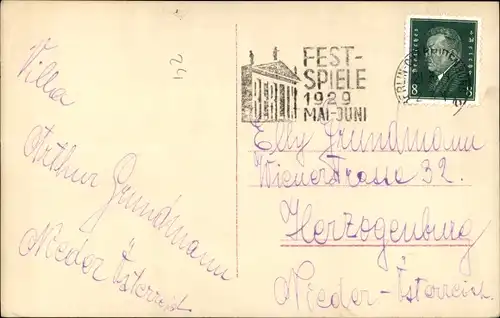 Villa
Arthur Grundmann
Nieder Österreich
142
FEST-
SPIELE
1929
MAI-JUNI
BERLIN
BERLIN
Deutsches Reich
8 8
Elly Grundmann
Wienerstrasse 32.
Herzogenburg
Nieder-Österreich.